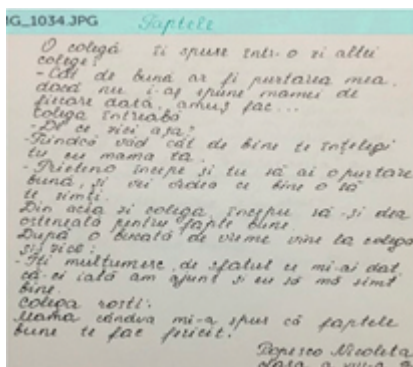 IG_1034.JPG
Faptele
O colegă îi spuse într-o zi altei
colege:
-Cât de bună ar fi purtarea mea,
dacă nu i-aș spune mamei de
fiecare dată, amuș fac...
Colega întreabă
-De ce zici așa?
-Findcă văd cât de bine te înțelegi
tu cu mama ta.
-Prieteno începe și tu să ai o purtare
bună, și vei vedea ce bine o să
te simți.
Din acia zi colega, începu să-și dea
osteneala pentru fapte bune.
După o bucată de vreme vine la colega
și-i zice:
-Îți mulțumesc, de sfatul ce mi-ai dat,
că-ci iată am ajuns și eu să mă simt
bine.
Colega rosti:
Mama cândva mi-a spus că faptele
bune te fac fericit!
Popesco Nicoleta